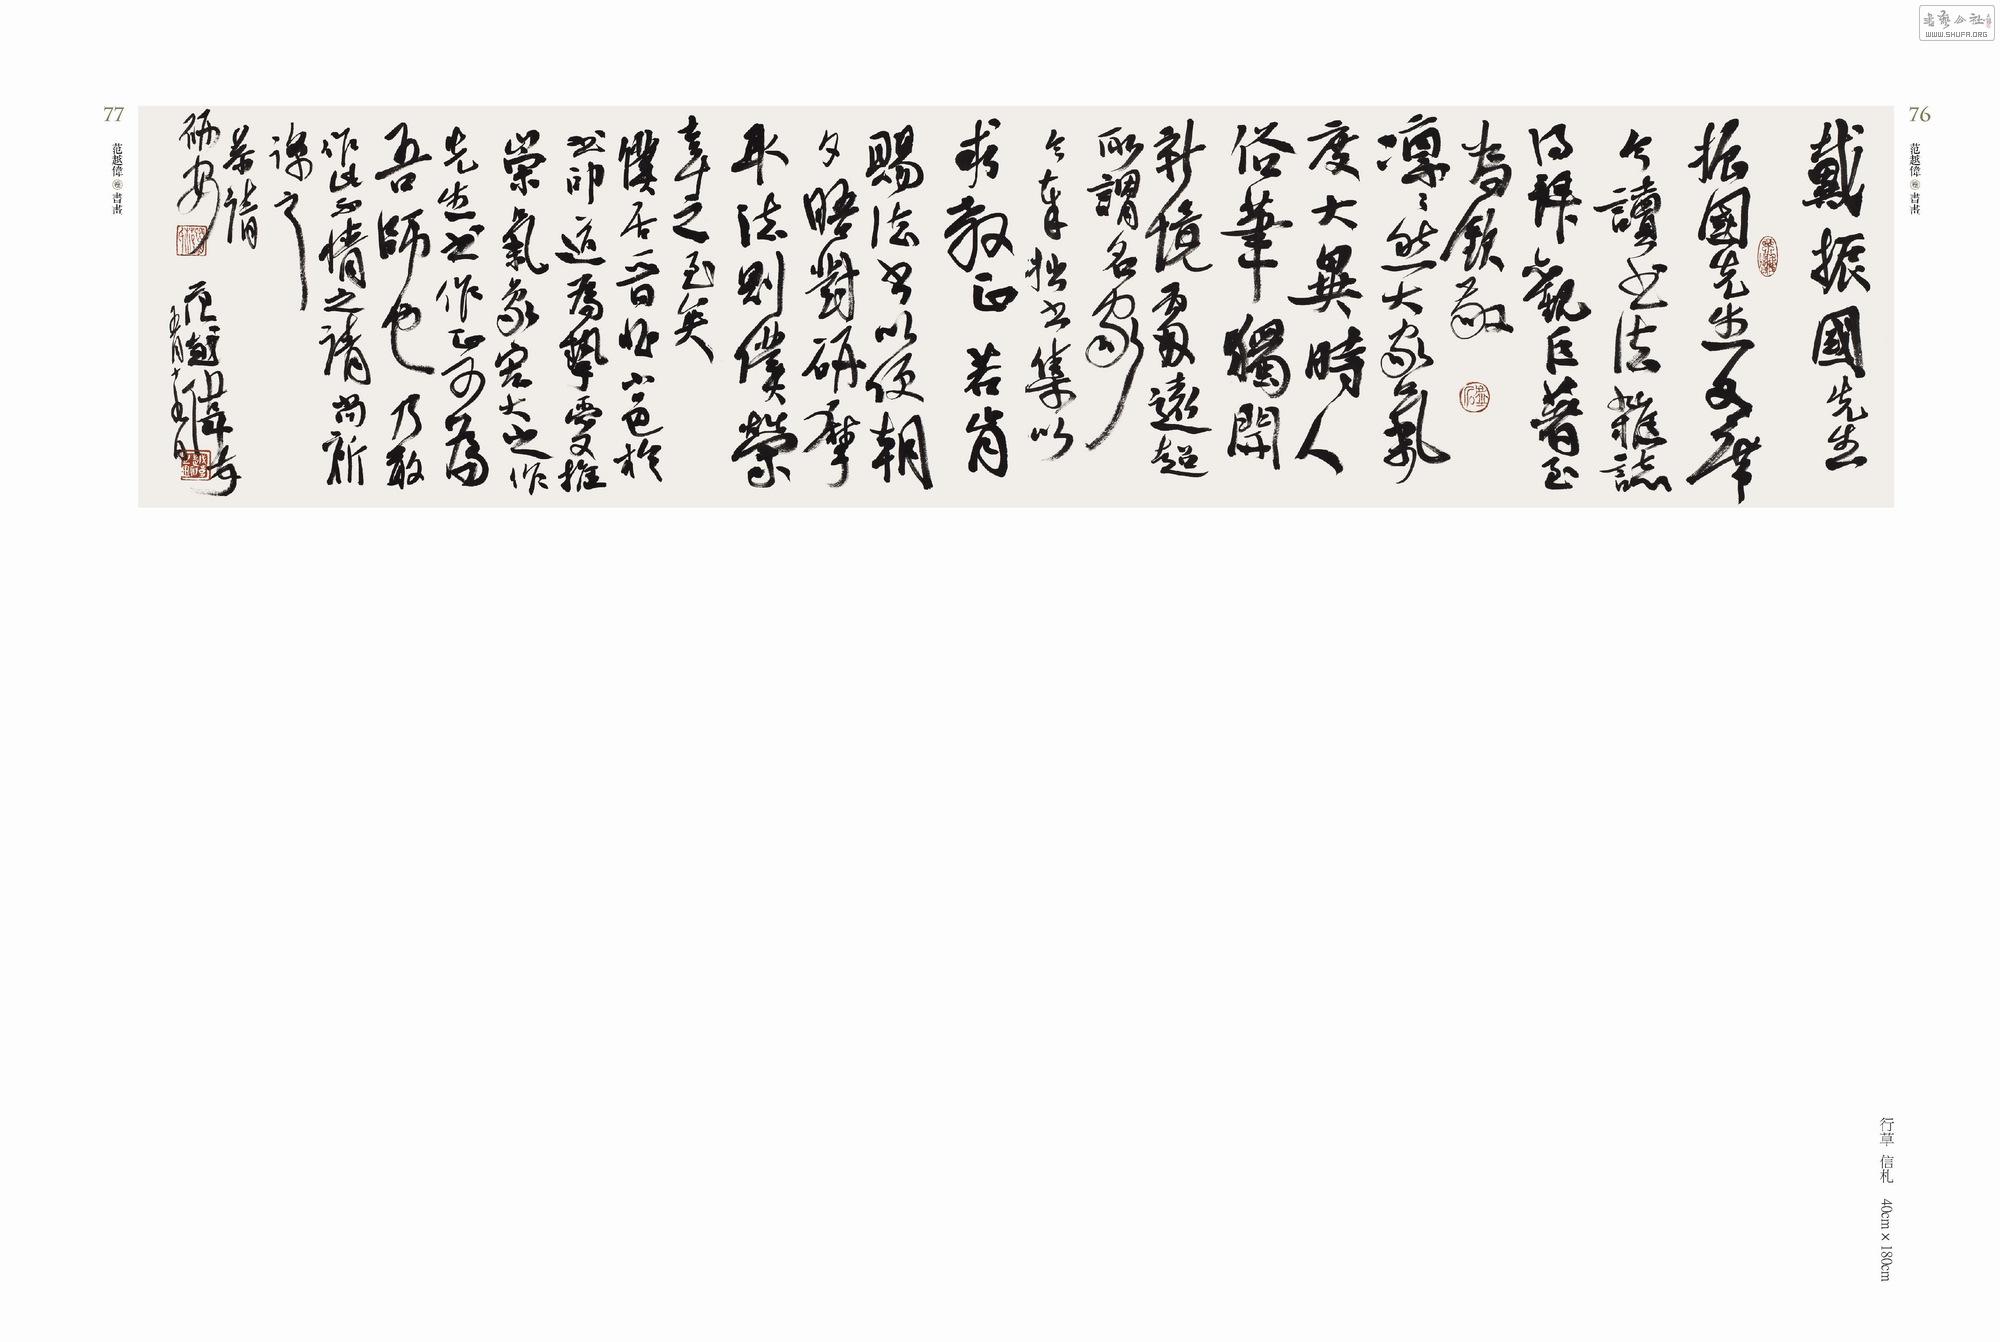 76
范越偉 書畫
戴振國先生
振國先生文席
今讀書法雜誌
得拜觀巨著至
為欽敬
凜凜然大家氣
度大異時人
俗筆獨開
新境更遠超
所謂名家
今奉拙書集以
求教正若肯
賜法書以便朝
夕晤對研摩
取法則僕榮
幸之至矣
僕居晉昔小邑於
書印道為摯愛推
崇氣象宏大之作
先生書作正可為
吾師也乃敢
作此不情之請尚祈
諒之
恭請
研安
范越偉
五月十五日
77
范越偉 書畫
行草 信札 40cm×180cm
書藝公社
WWW.SHUFA.ORG